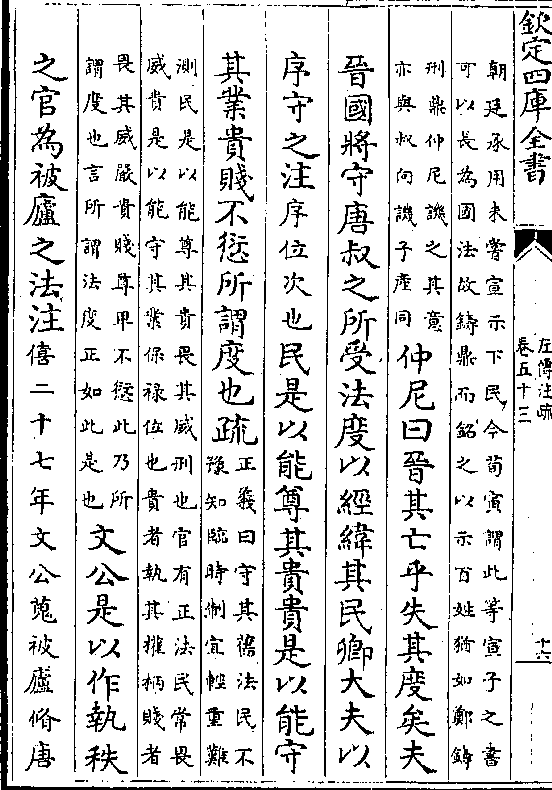 欽定四庫全書
左傳注疏
卷五十三
十六
朝廷承用未嘗宣示下民今荀寅謂此等宣子之書
可以長為國法故鑄鼎而銘之以示百姓猶如鄭鑄
刑鼎仲尼譏之其意
亦與叔向譏子產同
仲尼曰晉其亡乎失其度矣夫
晉國將守唐叔之所受法度以經緯其民卿大夫以
序守之注序位次也民是以能尊其貴貴是以能守
其業貴賤不愆所謂度也疏
正義曰守其舊法民不
豫知臨時制宜輕重難
測民是以能尊其貴畏其威刑也官有正法民常畏
威貴是以能守其業保祿位也貴者執其權柄賤者
畏其威嚴貴賤尊卑不愆此乃所
謂度也言所謂法度正如此是也
文公是以作執秩
之官為被廬之法注僖二十七年文公蒐被廬脩唐